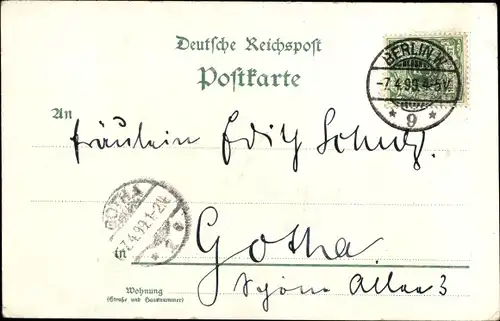 Deutsche Reichspost
Postkarte
BERLIN.W.
-7.4.99.4-5V.
* 9 *
An
Fräulein Edith Schulz.
GOTHA
7.4.99.1-2N.
* 2 e
in Gotha.
Schöne Allee 3
Wohnung
(Straße und Hausnummer)